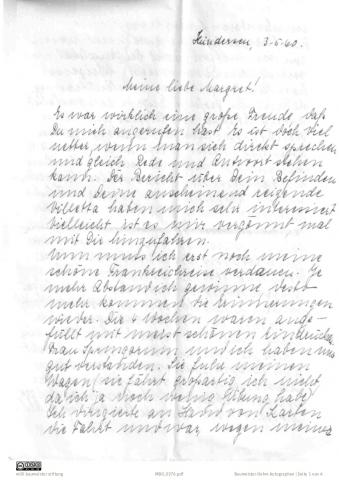 3-5-60.
Meine liebe Margret!
Es war wirklich eine große Freude, daß
Du mich angerufen hast. Es ist doch viel
netter, wenn man sich direkt sprechen
und gleich Rede und Antwort stehen
kann. Der Bericht über Dein Befinden
und Deine anscheinend reizende
Villetta haben mich sehr interessiert
Vielleicht ist es mir vergönnt mal
mit Dir hinzufahren.
Nun muss ich erst noch meine
schöne Frankreichreise verdauen. Je
mehr Abstand ich gewinne desto
mehr kommen die Erinnerungen
wieder. Die 4 Wochen waren ange-
füllt mit meist schönen Eindrücken
Frau und ich haben uns
gut verstanden. Sie fuhr meinen
Wagen (sie fährt großartig ich nicht
da ich ja noch wenig Übung habe)
Ich dirigierte an Hand von Karten
die Fahrt und war wegen meines
wilfr baumeister stiftung
MBG_0376.pdf
Seite 1 von 4